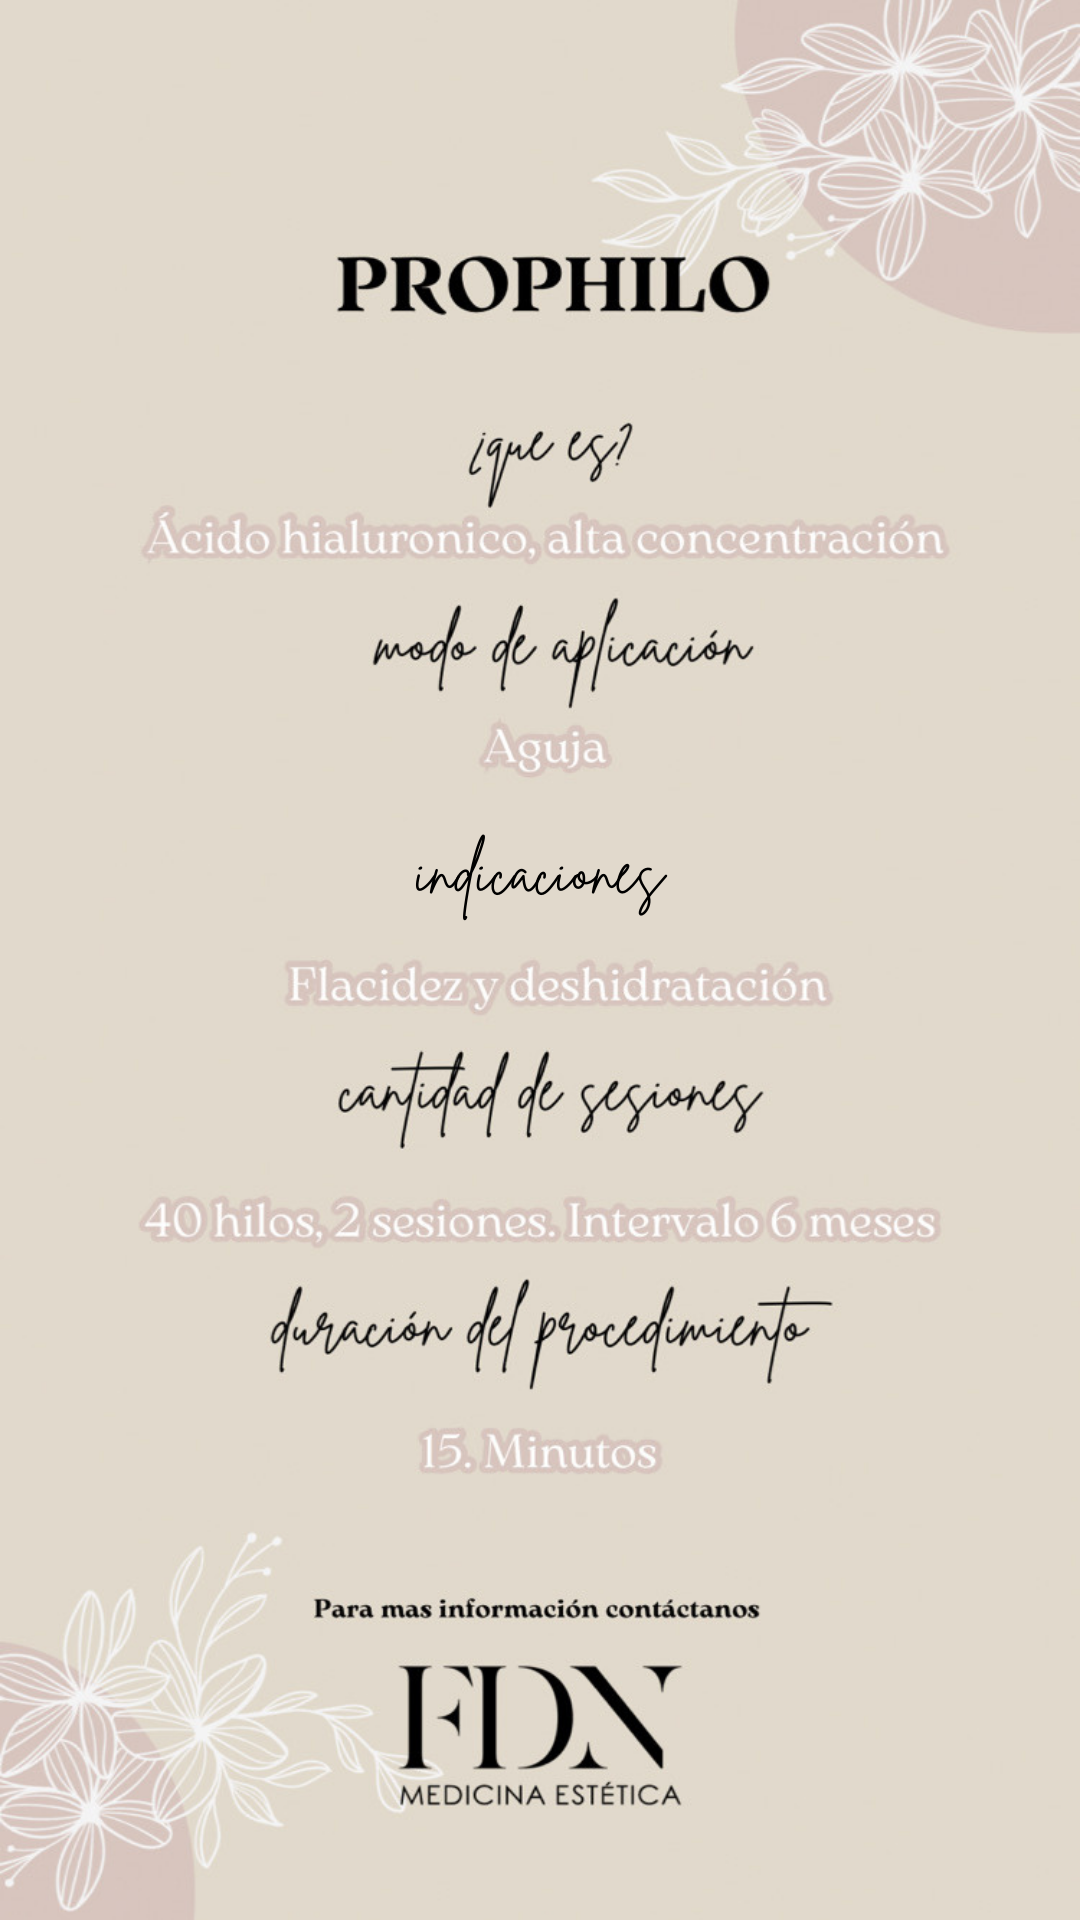 PROPHILO
¿que es?
Ácido hialuronico, alta concentración
modo de aplicación
Aguja
indicaciones
Flacidez y deshidratación
cantidad de sesiones
40 hilos, 2 sesiones. Intervalo 6 meses
duración del procedimiento
15. Minutos
Para mas información contáctanos
FDN
MEDICINA ESTÉTICA